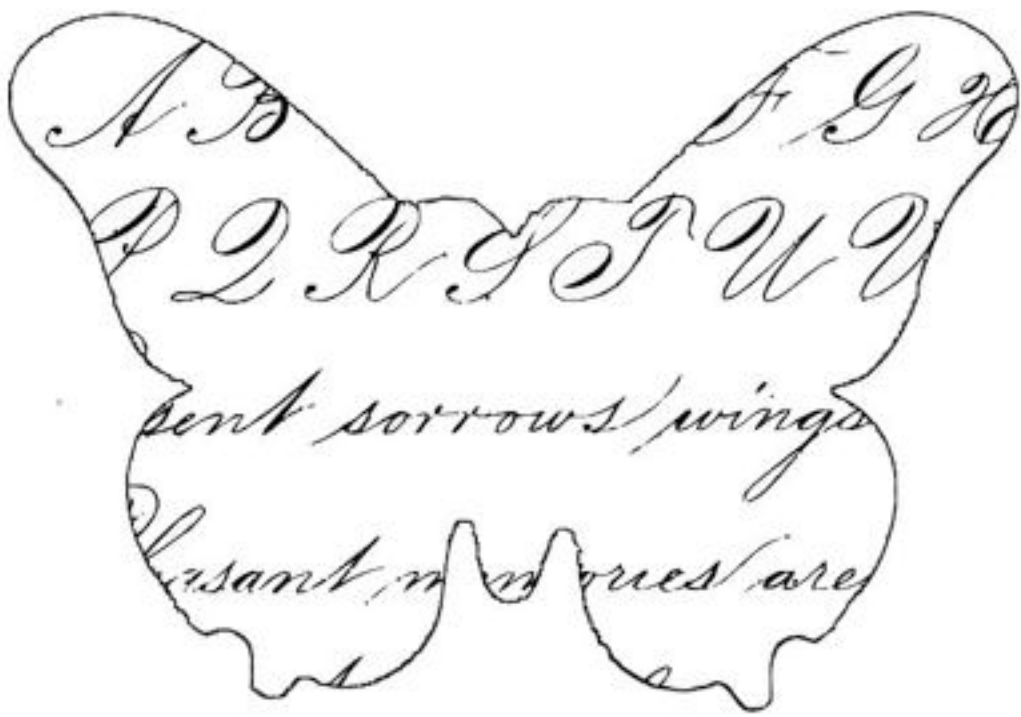 A B F G H
P Q R S T U V
sent sorrows wings
easant memories are